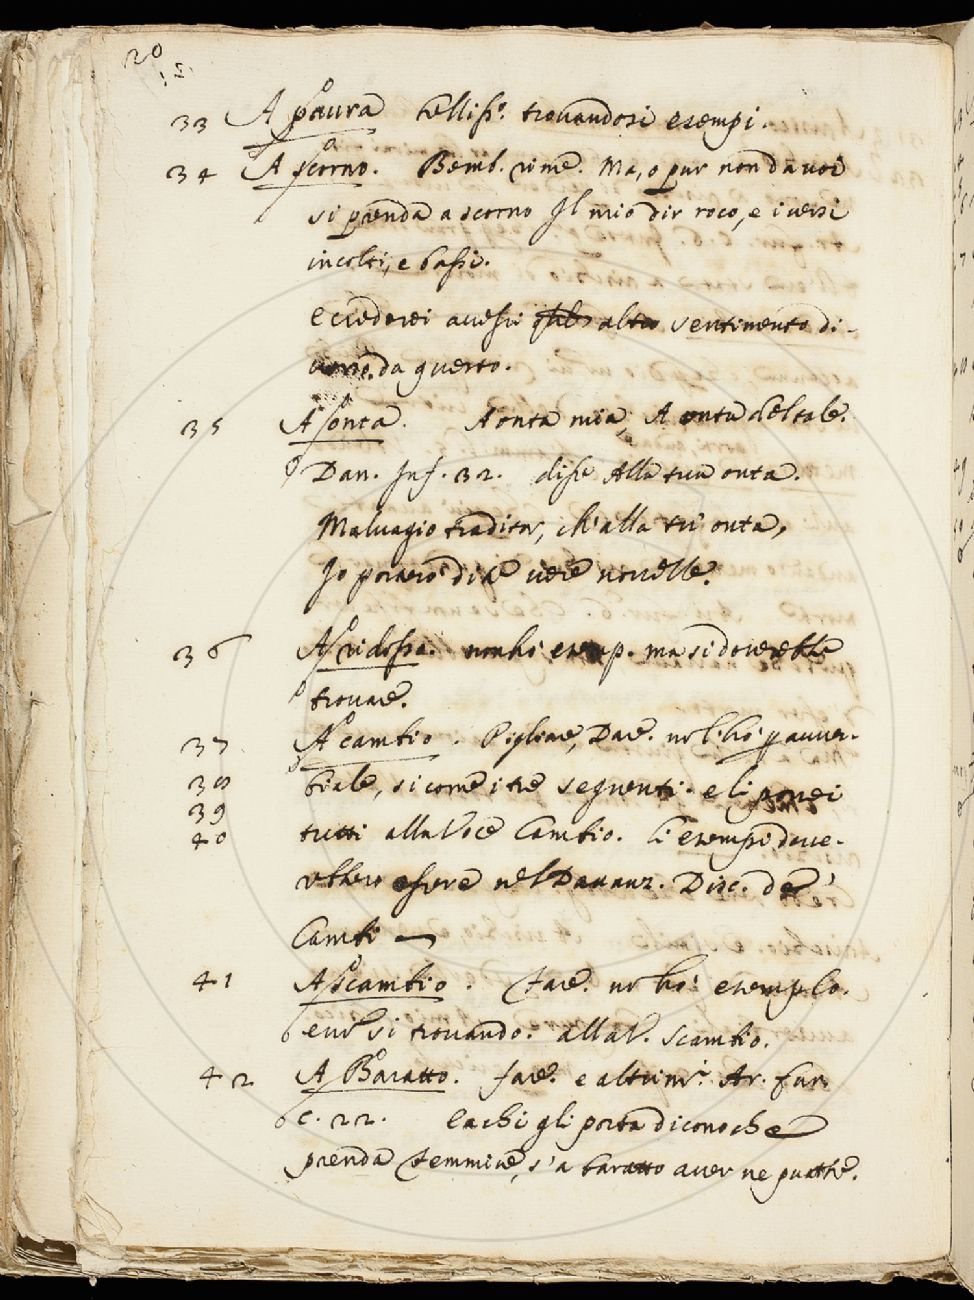 20
33 A paura tolliss.º trouandosi esempi.
34 A scorno. Bemb. rime. Ma, o pur non da voi
si prenda a scorno Il mio dir roco, e i versi
incolti, e bassi.
e crederei auessi altro sentimento di-
uerso da questo.
35 A onta. A onta mia, A onta del tale.
Dan. Inf. 32. disse Alla tua onta.
Malvagio traditor, ch'alla tu' onta,
Io porterò di te vere novelle.
36 A ridosso. non ho esemp. ma si dourebbe
trouare.
37 A cambio. Pigliare, Dare. nol' ho p auuer-
38 biale, si come i tre seguenti. e li porrei
39
40 tutti alla Voce Cambio. Li esempi doue-
rebbero essere nel Dauanz. Disc. de'
Cambi
41 A scambio. Fare. nō ho esemplo.
si trouando. alla V. Scambio.
42 A Baratto. fare. e altrim.ⁱ Ar. fur.
c. 22. E a chi gli porta dicono che
prenda Femmine, s' a baratto auer ne puote.